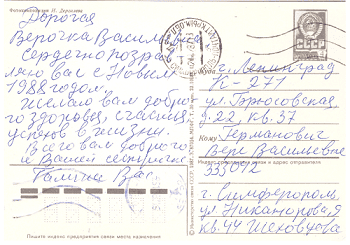 Дорогая
Верочка Васильевна!
Сердечно поздрав
ляю Вас с Новым
1988 годом.
Желаю вам доброго
здоровья, счастья,
успехов в жизни.
Всего вам доброго
и Вашей сестричке.
Вас.
СССР
Куда
г. Ленинград
К-271
ул.
д. 22, кв. 37
Кому
Германович
Вере Васильевне
Индекс предприятия связи и адрес отправителя
333012
г. Симферополь,
ул.
кв. 44
Пишите индекс предприятия связи места назначения